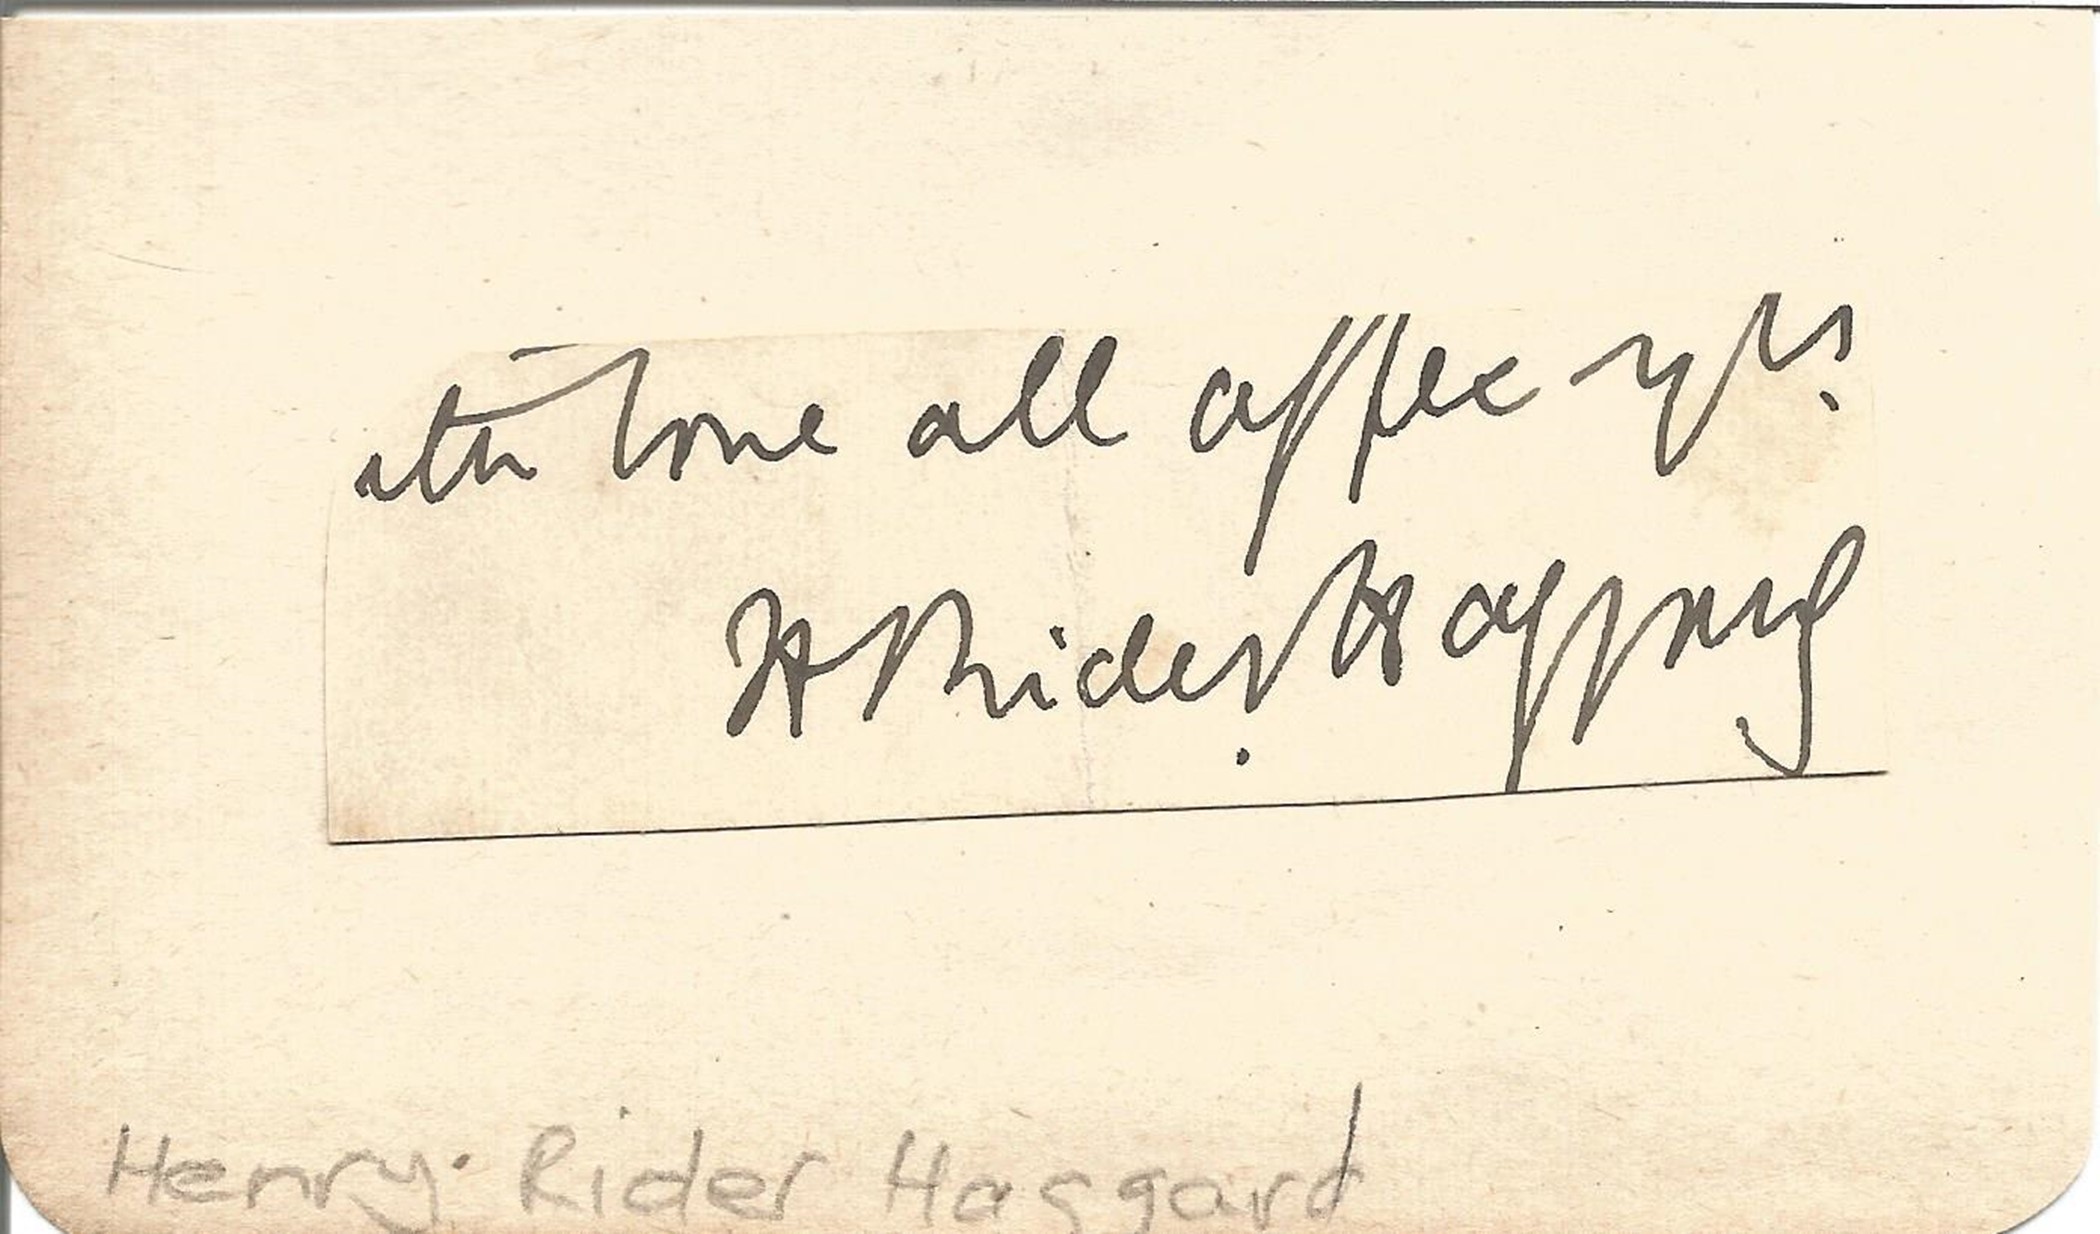 ith love all affec yrs.
H Rider Haggard
Henry Rider Haggard